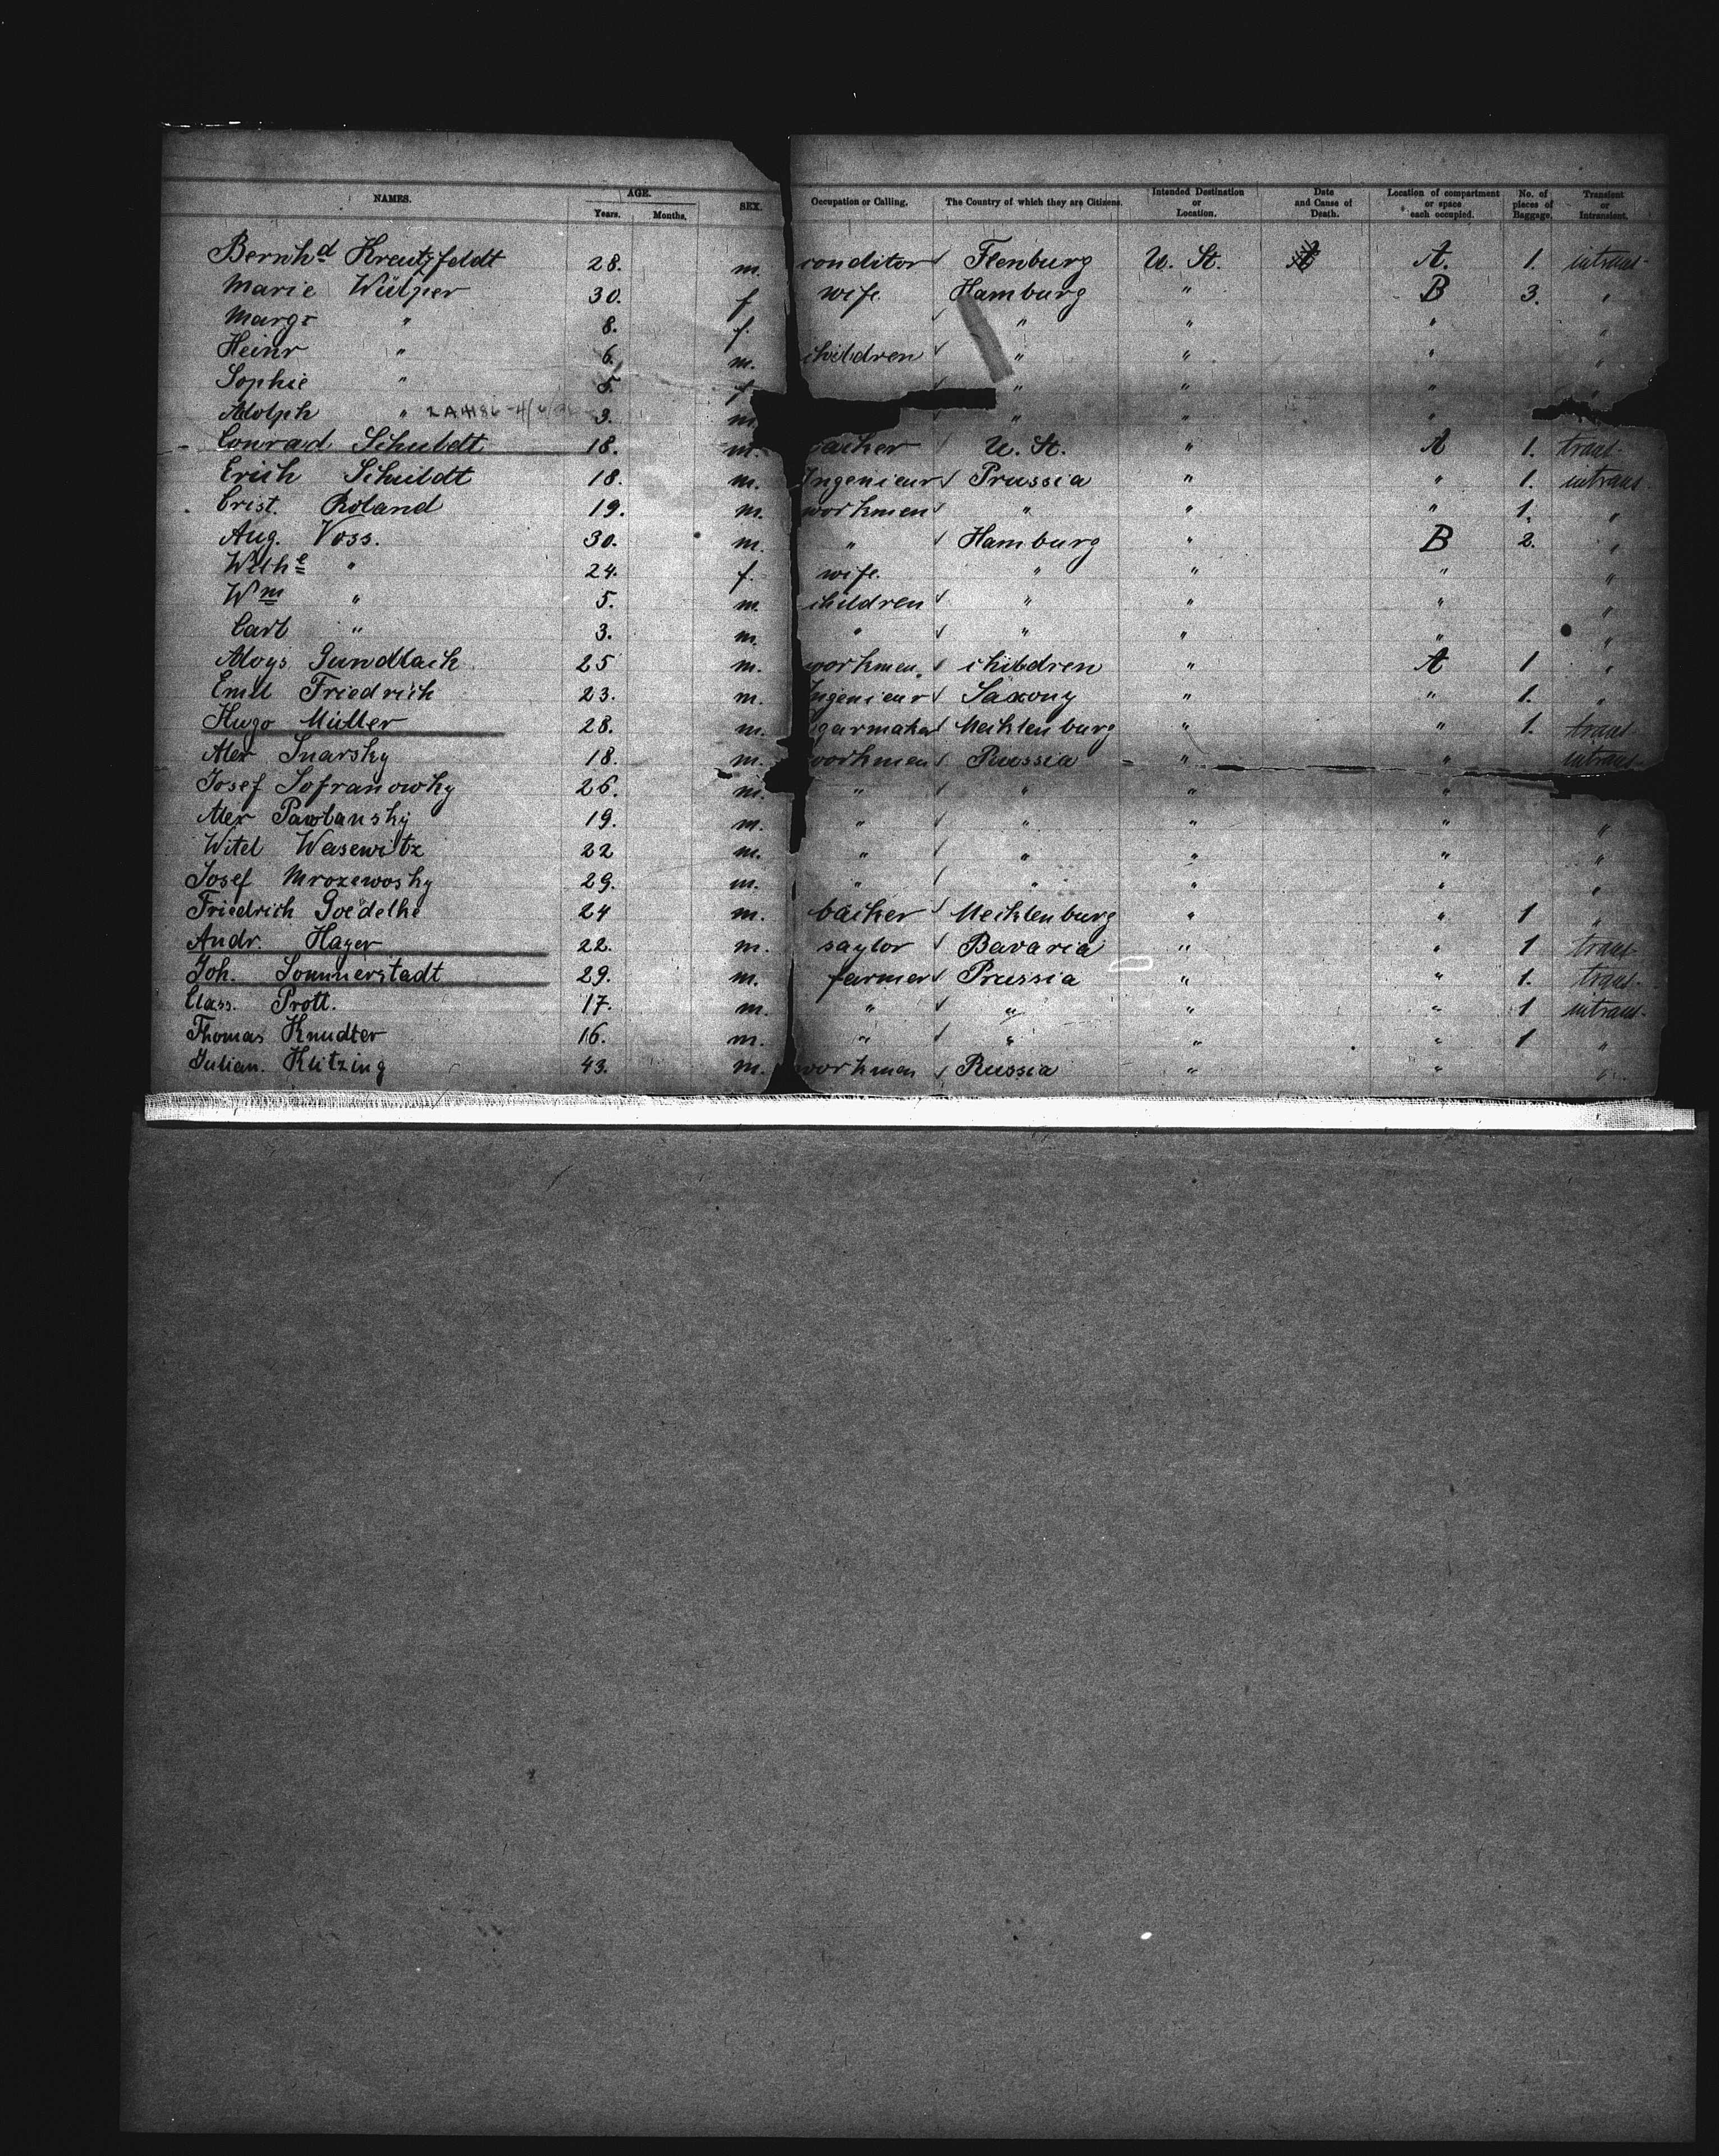 NAMES. AGE. Years. Months. SEX. Occupation or Calling. The Country of which they are Citizens. Intended Destination or Location. Date and Cause of Death. Location of compartment or space each occupied. No. of pieces of Baggage. Transient or Intransient.
Bernhd Kreutzfeldt 28. m. conditor Flenburg U. St. A. 1. intrans-
Marie Wülper 30. f wife Hamburg " B 3. "
Margr " 8. f. " " " "
Heinr " 6. m. children " " " "
Sophie " 5. f. " " " "
Adolph " 3. m. " " "
Conrad Schuldt 18. m. bäcker U. St. " A 1. trans-
Erich Schuldt 18. m. Ingenieur Prussia " " 1. intrans-
Crist. Roland 19. m. workmen " " " 1. "
Aug. Voss. 30. m. " Hamburg " B 2. "
Wilhe " 24. f. wife. " " " "
Wm " 5. m. children " " " "
Carl " 3. m. " " " " "
Aloys Gundlach 25 m. workmen. children " A 1 "
Emil Friedrich 23. m. Ingenieur Saxony " " 1. "
Hugo Müller 28. m. garmaker Mecklenburg " " 1. trans-
Alex Snarsky 18. m. workmen Russia " " intrans-
Josef Sofranowky 26. m. " " " "
Alex Pawlansky 19. m. " " " " "
Witel Wasewitz 22 m. " " " " "
Josef Mrozewosky 29. m. " " " " "
Friedrich Goedelke 24 m. bäcker Mecklenburg " " 1 "
Andr. Hager 22. m. saylor Bavaria " " 1 trans-
Joh. Sommerstadt 29. m. farmer Prussia " " 1. trans-
Class. Prott. 17. m. " " " " 1 intrans-
Thomas Knudter 16. m. " " " " 1 "
Julian. Klitzing 43. m. workman Russia " " "